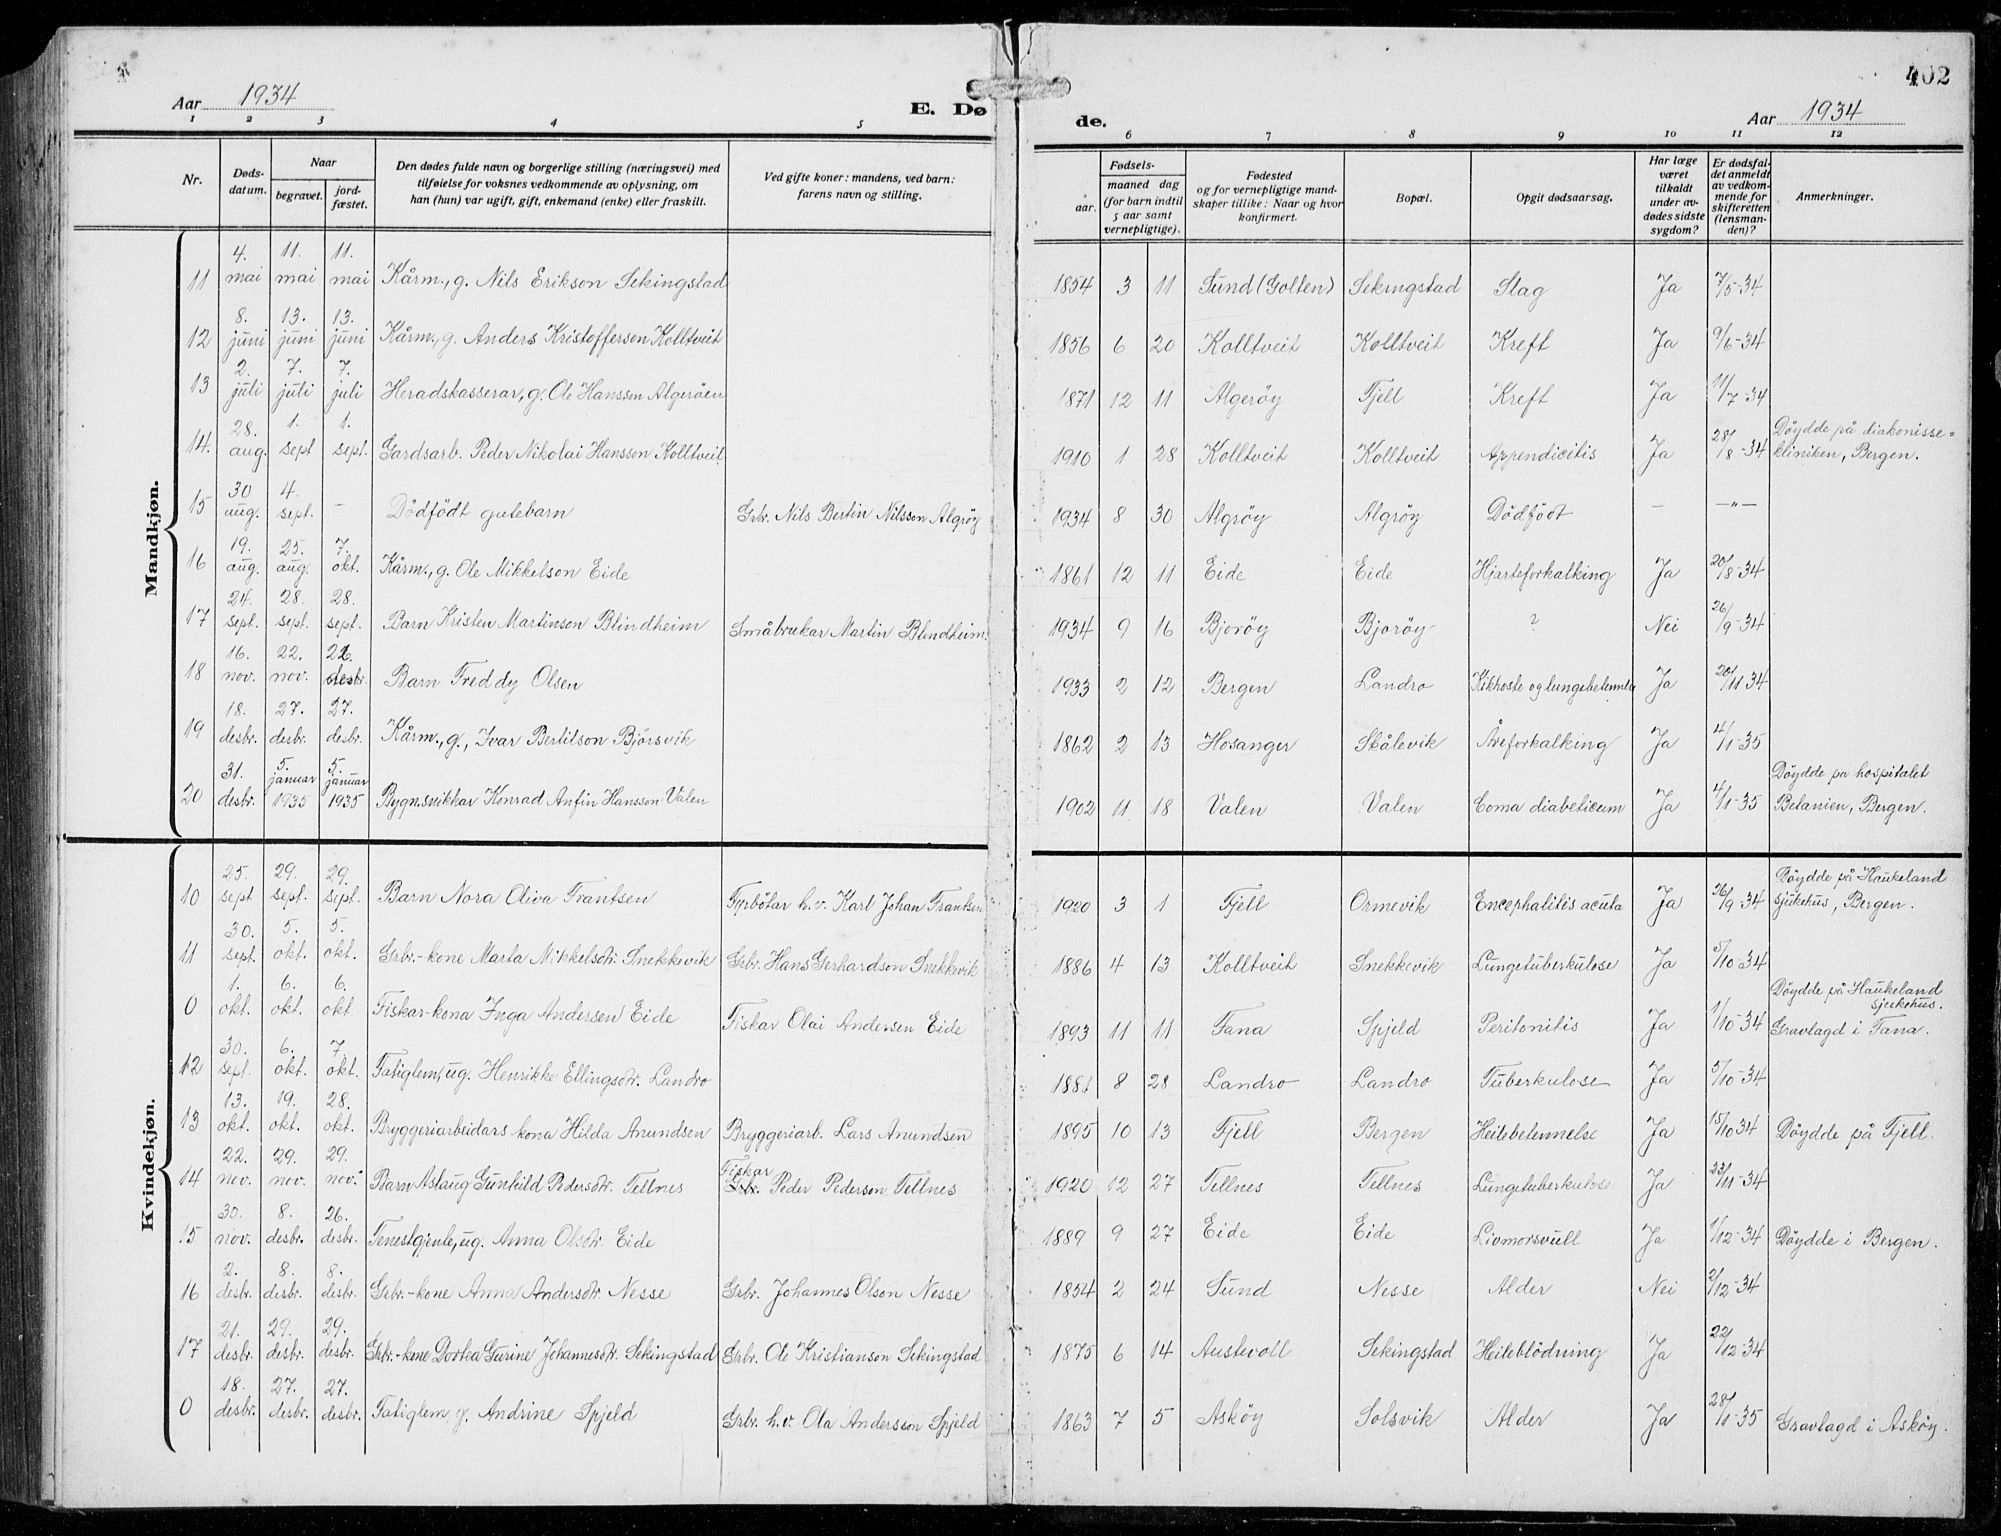 402
Aar 1934 E. Dø de. Aar 1934
1 2 3 4 5 6 7 8 9 10 11 12
Nr. Døds-datum. Naar begravet. jord-fæstet. Den dødes fulde navn og borgerlige stilling (næringsvei) med tilføielse for voksnes vedkommende av oplysning, om han (hun) var ugift, gift, enkemand (enke) eller fraskilt. Ved gifte koner: mandens, ved barn: farens navn og stilling. Fødsels- aar. maaned dag (for barn indtil 5 aar samt vernepligtige). Fødested og for vernepligtige mand-skaper tillike: Naar og hvor konfirmert. Bopæl. Opgit dødsaarsag. Har læge været tilkaldt under av-dødes sidste sygdom? Er dødsfal-det anmeldt av vedkom-mende for skifteretten (lensman-den)? Anmerkninger.
Mandkjøn.
11 4. mai 11. mai 11. mai Kårm., g. Nils Erikson Sekingstad 1854 3 11 Sund (Golten) Sekingstad Slag Ja 7/5-34
12 8. juni 13. juni 13. juni Kårm., g. Anders Kristofferson Kolltveit 1856 6 20 Kolltveit Kolltveit Kreft Ja 9/6-34
13 2. juli 7. juli 7. juli Heradskasserar, g. Ole Hansson Algeröen 1871 12 11 Algeröy Fjell Kreft Ja 11/7-34
14. 28. aug. 1. sept 1. sept. Gardsarb. Peder Nikolai Hansson Kolltveit 1910 1 28 Kolltveit Kolltveit Appendicitis Ja 28/8-34 Döydde på diakonisse=kliniken, Bergen.
15 30 aug. 4. sept. - Dödfödt gutebarn Grbr. Nils Bertin Nilsson Algröy 1934 8 30 Algröy Algröy Dödfödt - -"-
16 19. aug. 25. aug. 7. okt. Kårm., g. Ole Mikkelson Eide 1861 12 11 Eide Eide Hjarteforkalking Ja 20/8-34
17 24. sept. 28. sept. 28. sept. Barn Kristen Martinson Blindheim Småbrukar Martin Blindheim. 1934 9 16 Bjoröy Bjoröy ? Nei 26/9-34
18 16. nov. 22. nov. 22. desbr. Barn Freddy Olsen 1933 2 12 Bergen Landro Kikhoste og lungebetennelse Ja 20/11 34
19 18. desbr. 27. desbr. 27. desbr. Kårm., g., Ivar Bertilson Björsvik 1862 2 13 Hosanger Skålevik Åreforkalking Ja 4/1-35
20 31. desbr. 5. januar 1935 5. januar 1935 Bygn.snikkar Konrad Anfin Hansson Valen 1902 11 18 Valen Valen Coma diabeticum Ja 4/1-35 Döydde pa hospitalet Betanien, Bergen.
Kvindekjøn.
10 25. sept 29. sept. 29. sept. Barn Nora Oliva Frantsen Fyrbötar h.v. Karl Johan Frantsen 1920 3 1 Fjell Ormevik Encephalitis acuta Ja 26/9-34 Döydde på Haukeland sjukehus, Bergen.
11 30. sept. 5. okt. 5. okt. Grbr.-kone Marta Mikkelsdtr. Snekkevik Grbr. Hans Gerhardson Snekkevik 1886 4 13 Kolltveit Snekkevik Lungetuberkulose Ja 5/10-34
0 1. okt. 6. okt. 6. okt. Fiskar-kona Inga Andersen Eide Fiskar Olai Andersen Eide 1893 11 11 Fana Spjeld Peritonitis Ja 1/10-34 Döydde på Haukeland sjukehus. Gravlagd i Fana.
12 30. sept. 6. okt. 7. okt. Fatiglem, ug. Henrikke Ellingsdtr. Landro 1881 8 28 Landro Landro Tuberkulose Ja 5/10-34
13 13. okt. 19. okt. 28. okt. Bryggeriarbeidars kona Hilda Anundsen Bryggeriarb. Lars Anundsen 1895 10 13 Fjell Bergen Heilebetennelse Ja 15/10 34 Döydde på Fjell.
14 22. nov. 29. nov. 29. nov. Barn Aslaug Gunhild Pedersdtr. Tellnes Fiskar Grbr. Peder Pederson Tellnes 1920 12 27 Tellnes Tellnes Lungetuberkulose Ja 23/11-34
15 30. nov. 8. desbr. 26. desbr. Tenestgjente, ug. Anna Olsdtr. Eide 1889 9 27 Eide Eide Livmorsvull Ja 1/12-34 Döydde i Bergen.
16 2. desbr. 8. desbr. 8. desbr. Grbr.-kone Anna Andersdtr. Nesse Grbr. Johannes Olson Nesse 1854 2 24 Sund Nesse Alder Nei 2/12-34
17 21. desbr. 29. desbr. 29. desbr. Grbr.-kone Dortea Gurine Johannesdtr. Sekingstad Grbr. Ole Kristianson Sekingstad 1875 6 14 Austevoll Sekingstad Heileblödning Ja 22/12-34
0 18. desbr. 27. desbr. 27. desbr. Fatiglem, g. Andrine Spjeld Grbr. h.v. Ola Andersson Spjeld 1863 7 5 Asköy Solsvik Alder Ja 28/1-35 Gravlagd i Asköy.